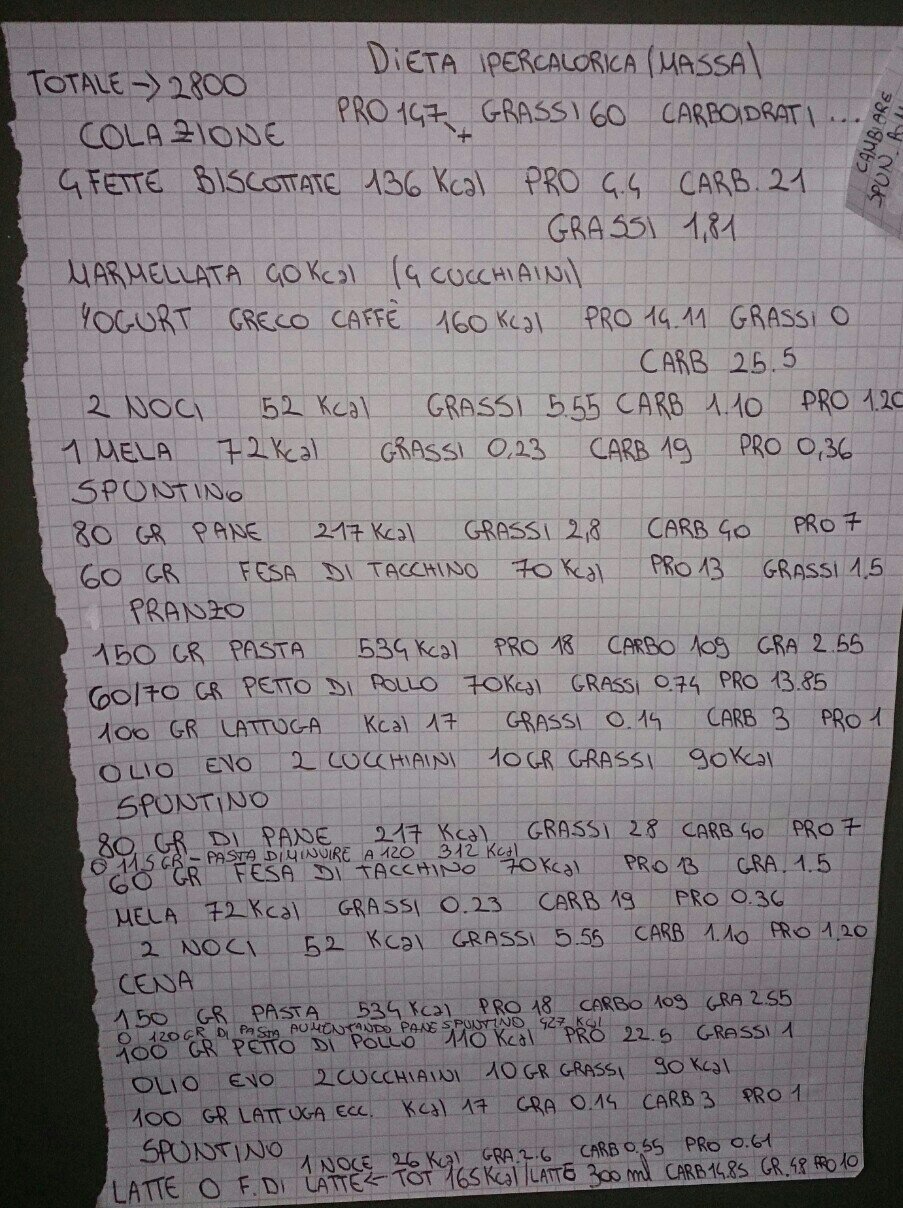 DIETA IPERCALORICA (MASSA)
TOTALE → 2800
PRO 147 + GRASSI 60 CARBOIDRATI ...
CAMBIARE
SPUN.
COLAZIONE
4 FETTE BISCOTTATE 136 Kcal PRO 4.4 CARB. 21
GRASSI 1,81
MARMELLATA 40 Kcal (4 CUCCHIAINI)
YOGURT GRECO CAFFÈ 160 Kcal PRO 14.11 GRASSI 0
CARB 25.5
2 NOCI 52 Kcal GRASSI 5.55 CARB 1.10 PRO 1.20
1 MELA 72 Kcal GRASSI 0,23 CARB 19 PRO 0,36
SPUNTINO
80 GR PANE 217 Kcal GRASSI 2,8 CARB 40 PRO 7
60 GR FESA DI TACCHINO 70 Kcal PRO 13 GRASSI 1,5
PRANZO
150 GR PASTA 534 Kcal PRO 18 CARBO 109 GRA 2.55
60/70 GR PETTO DI POLLO 70 Kcal GRASSI 0.74 PRO 13.85
100 GR LATTUGA Kcal 17 GRASSI 0.14 CARB 3 PRO 1
OLIO EVO 2 CUCCHIAINI 10 GR GRASSI 90 Kcal
SPUNTINO
80 GR DI PANE 217 Kcal GRASSI 2.8 CARB 40 PRO 7
O 115 GR - PASTA DIMINUIRE A 120 312 Kcal
60 GR FESA DI TACCHINO 70 Kcal PRO 13 GRA. 1.5
MELA 72 Kcal GRASSI 0.23 CARB 19 PRO 0.36
2 NOCI 52 Kcal GRASSI 5.55 CARB 1.10 PRO 1,20
CENA
150 GR PASTA 534 Kcal PRO 18 CARBO 109 GRA 2.55
O 120 GR DI PASTA AUMENTANDO PANE SPUNTINO 427 Kcal
100 GR PETTO DI POLLO 110 Kcal PRO 22.5 GRASSI 1
OLIO EVO 2 CUCCHIAINI 10 GR GRASSI 90 Kcal
100 GR LATTUGA ECC. Kcal 17 GRA 0.14 CARB 3 PRO 1
SPUNTINO
1 NOCE 26 Kcal GRA 2.6 CARB 0.55 PRO 0.61
LATTE O F. DI LATTE ← TOT 165 Kcal/LATTE 300 ml CARB 14.85 GR. 4.8 PRO 10